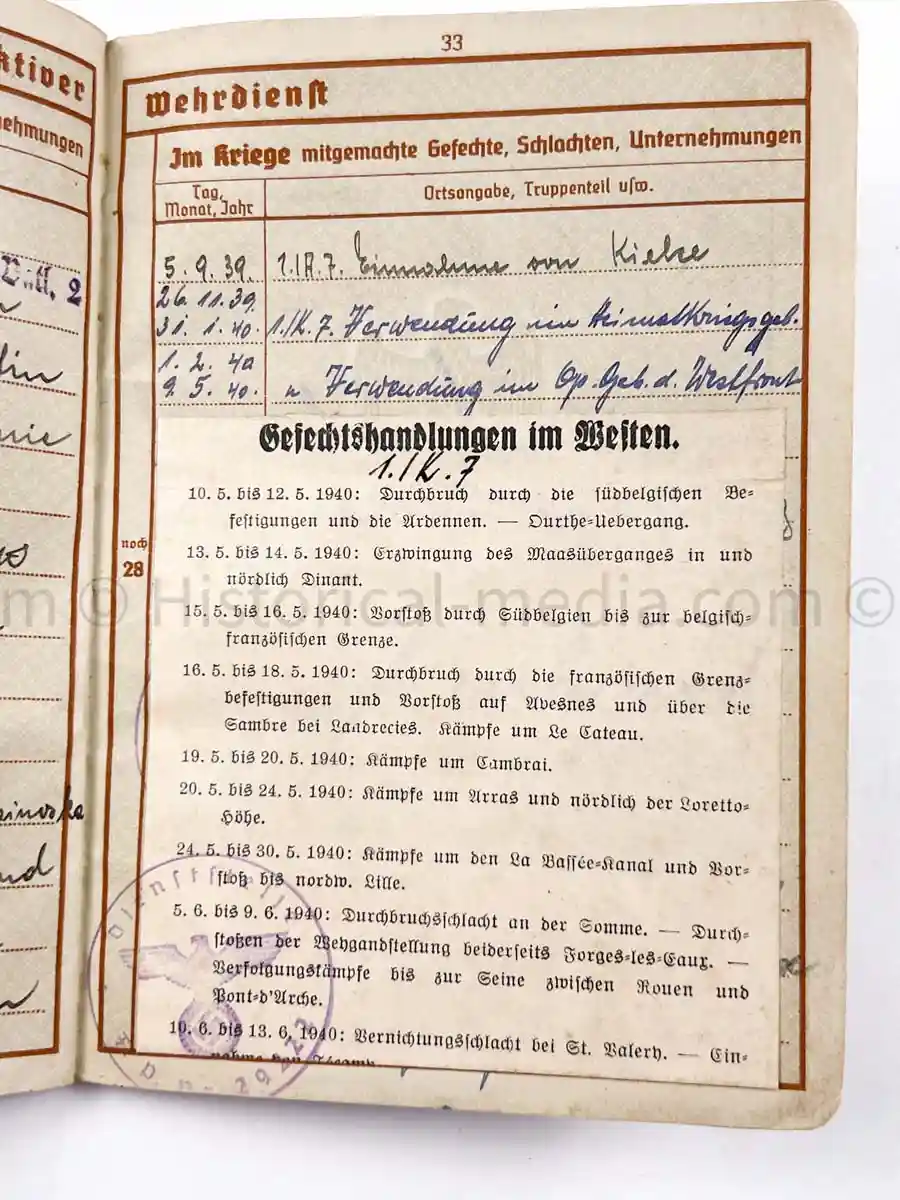 ktiver
nehmungen
Batl. 2
33
Wehrdienst
Im Kriege mitgemachte Gefechte, Schlachten, Unternehmungen
Tag, Monat, Jahr
Ortsangabe, Truppenteil usw.
5. 9. 39. 1./K. 7. Einnahme von Kielce
26. 11. 39.
31. 1. 40. 1./K. 7. Verwendung im Heimatkriegsgeb.
1. 2. 40
9. 5. 40. " Verwendung im Op. Geb. d. Westfront
Gefechtshandlungen im Westen.
1./K. 7
10. 5. bis 12. 5. 1940: Durchbruch durch die südbelgischen Be-
festigungen und die Ardennen. — Ourthe-Uebergang.
13. 5. bis 14. 5. 1940: Erzwingung des Maasüberganges in und
nördlich Dinant.
noch
28
15. 5. bis 16. 5. 1940: Vorstoß durch Südbelgien bis zur belgisch-
französischen Grenze.
16. 5. bis 18. 5. 1940: Durchbruch durch die französischen Grenz-
befestigungen und Vorstoß auf Avesnes und über die
Sambre bei Landrecies. Kämpfe um Le Cateau.
19. 5. bis 20. 5. 1940: Kämpfe um Cambrai.
20. 5. bis 24. 5. 1940: Kämpfe um Arras und nördlich der Loretto-
Höhe.
24. 5. bis 30. 5. 1940: Kämpfe um den La Bassée-Kanal und Vor-
stoß bis nordw. Lille.
5. 6. bis 9. 6. 1940: Durchbruchsschlacht an der Somme. — Durch-
stoßen der Weygandstellung beiderseits Forges-les-Eaux. —
Verfolgungskämpfe bis zur Seine zwischen Rouen und
Pont-d'Arche.
10. 6. bis 13. 6. 1940: Vernichtungsschlacht bei St. Valery. — Ein-
nahme von Fécamp
Dienststelle
© Historical-media.com ©